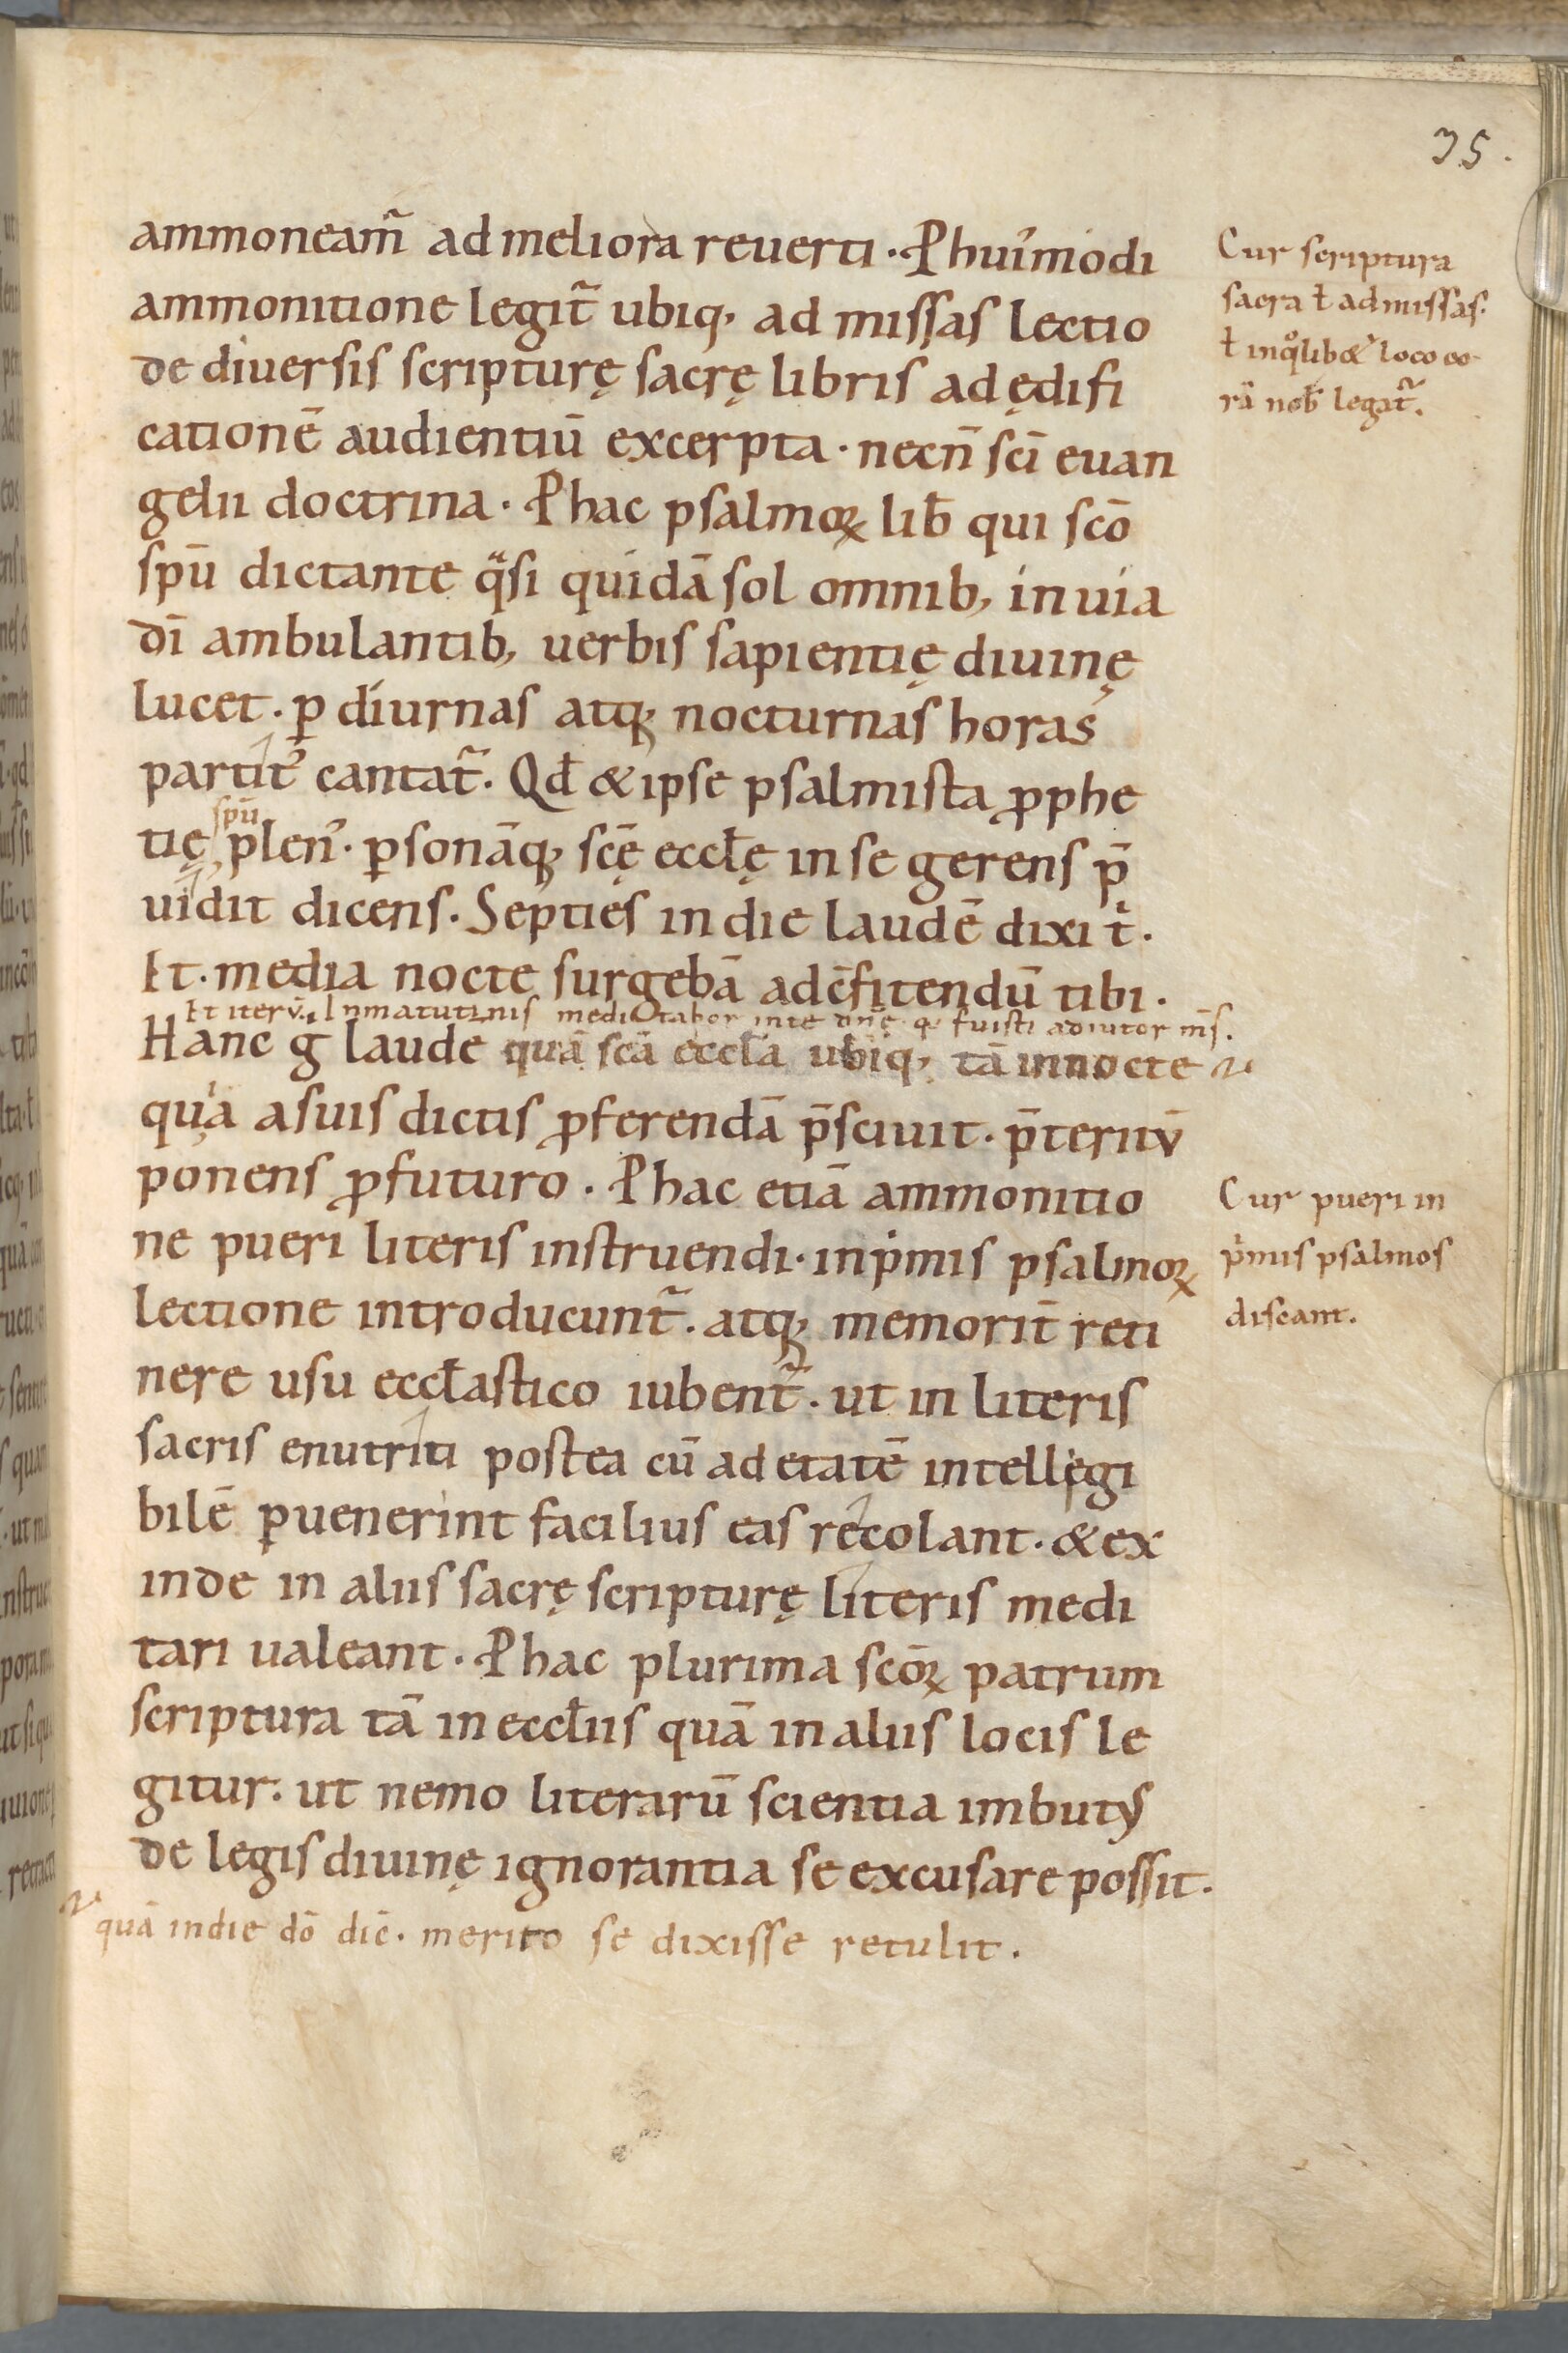 35.
ammoneam̃ ad meliora reuerti · P huı̃modi
ammonitione legit̃ ubiq, ad missas lectio
de diuersis scripturę sacrę libris ad ędifi
cationē audientiū excerpta · necn̄ sc̄i euan
gelii doctrina · P hac psalmoꝝ lib̄ qui sc̄o
sp̄u dictante q̃si quidā sol omnib, in uia
dī ambulantib, uerbis sapientię diuinę
lucet · ꝑ diurnas atq, nocturnas horas
partit̃ cantat̃. Qđ & ipse psalmista ꝓphe
tię sp̄u plen᾿ · ꝑsonāq, sc̄ę eccłę in se gerens p̄
uidit dicens. Septies in die laudē dixi t̕ .
Et · media nocte surgebā ad c̄fitendū tibi .
Et iterū. In matutinis meditabor in te dn̄e q̕ fuisti adiutor m̄s.
Hanc g̕ laude quā sc̄a eccła ubiq, tā in nocte
quā a suis dictis ꝓferendā p̄sciuit · p̄teritū
ponens ꝓ futuro . P hac etiā ammonitio
ne pueri literis instruendi · in p̕mis psalmoꝝ
lectione introducunt̃ . atq, memorit̄ reti
nere usu eccłastico iubent̃ . ut in literis
sacris enutriti postea cū ad etatē intellegi
bilē ꝑuenerint facilius eas recolant · & ex
inde in aliis sacrę scripturę literis medi
tari ualeant · P hac plurima sc̄oꝝ patrum
scriptura tā in eccłiis quā in aliis locis le
gitur · ut nemo literarū scientia imbutꝰ
de legis diuinę ignorantia se excusare possit .
quā in die dō dic̄ · merito se dixisse retulit .
Cur scriptura
sacra ł ad missas.
ł in qͦlib& loco co
rā nob̄ legat̃.
Cur pueri in
p̕mis psalmos
discant.